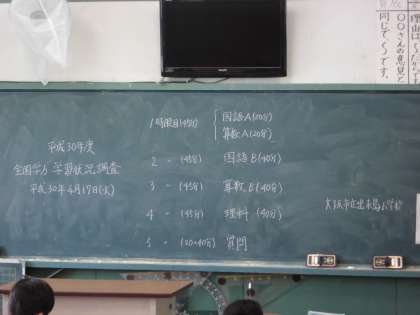 平成30年度
全国学力・学習状況調査
平成30年4月17日(火)
1時限目(45分) 国語A(20分)
算数A(20分)
2 - (45分) 国語B(40分)
3 - (45分) 算数B(40分)
4 - (45分) 理科(40分)
5 - (20~40分) 質問
大阪市立出来島小学校
理由は
〇〇さんの意見と
同じでくうです。